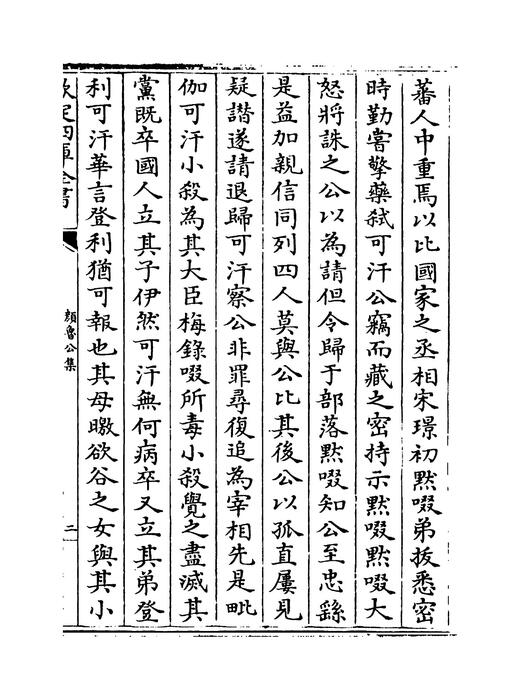 蕃人中重焉以比國家之丞相宋璟初黙啜弟拔悉密
時勤嘗擎藥弑可汗公竊而藏之密持示黙啜黙啜大
怒將誅之公以為請但令歸于部落黙啜知公至忠繇
是益加親信同列四人莫與公比其後公以孤直屢見
疑譖遂請退歸可汗察公非罪尋復追為宰相先是毗
伽可汗小殺為其大臣梅錄啜所毒小殺覺之盡滅其
黨既卒國人立其子伊然可汗無何病卒又立其弟登
利可汗華言登利猶可報也其母暾欲谷之女與其小
欽定四庫全書
顔魯公集
二